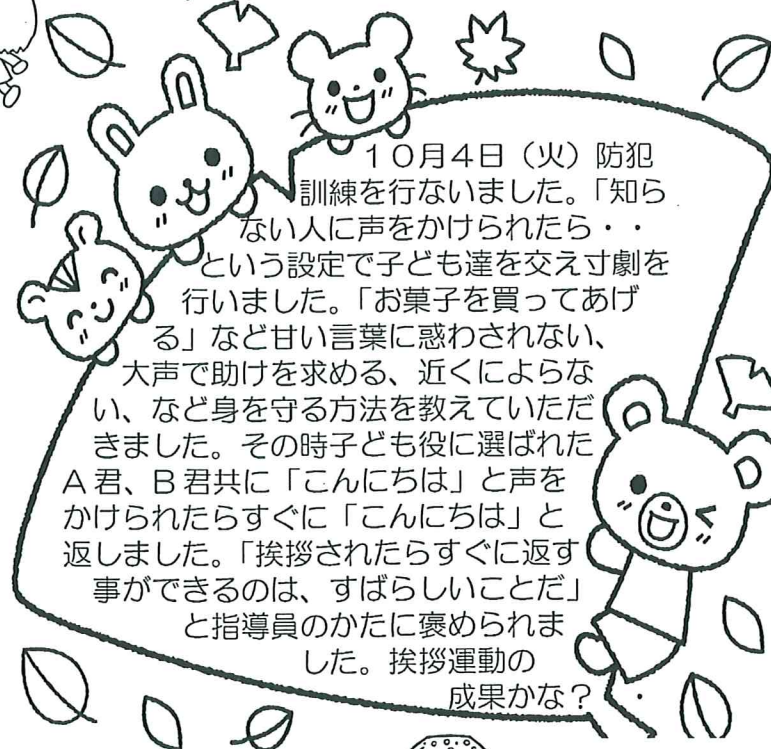 10月4日（火）防犯
訓練を行ないました。「知ら
ない人に声をかけられたら・・
という設定で子ども達を交え寸劇を
行いました。「お菓子を買ってあげ
る」など甘い言葉に惑わされない、
大声で助けを求める、近くによらな
い、など身を守る方法を教えていただ
きました。その時子ども役に選ばれた
A君、B君共に「こんにちは」と声を
かけられたらすぐに「こんにちは」と
返しました。「挨拶されたらすぐに返す
事ができるのは、すばらしいことだ」
と指導員のかたに褒められま
した。挨拶運動の
成果かな？